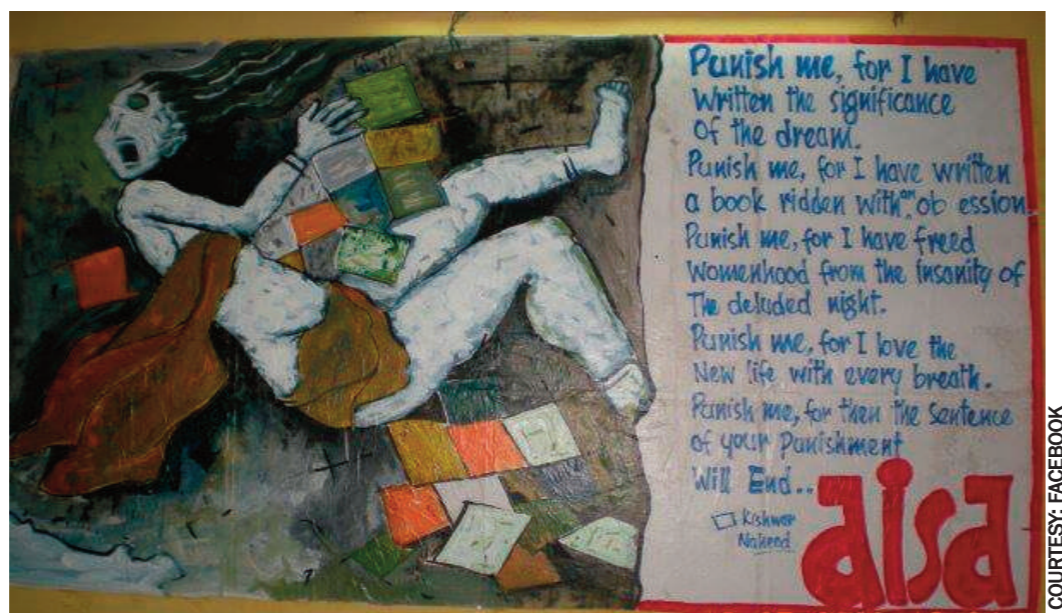 Punish me, for I have
Written the significance
Of the dream.
Punish me, for I have written
a book ridden with an ob ession
Punish me, for I have freed
Womenhood from the insanity of
The deluded night.
Punish me, for I love the
New life with every breath.
Punish me, for then the sentence
of your Punishment
Will End..
Kishwar
Naheed
aisa
COURTESY: FACEBOOK